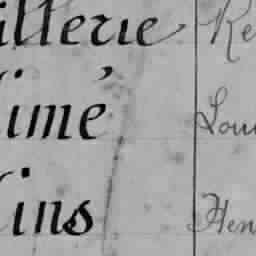 illerie Re
imé Lou
ins Hen